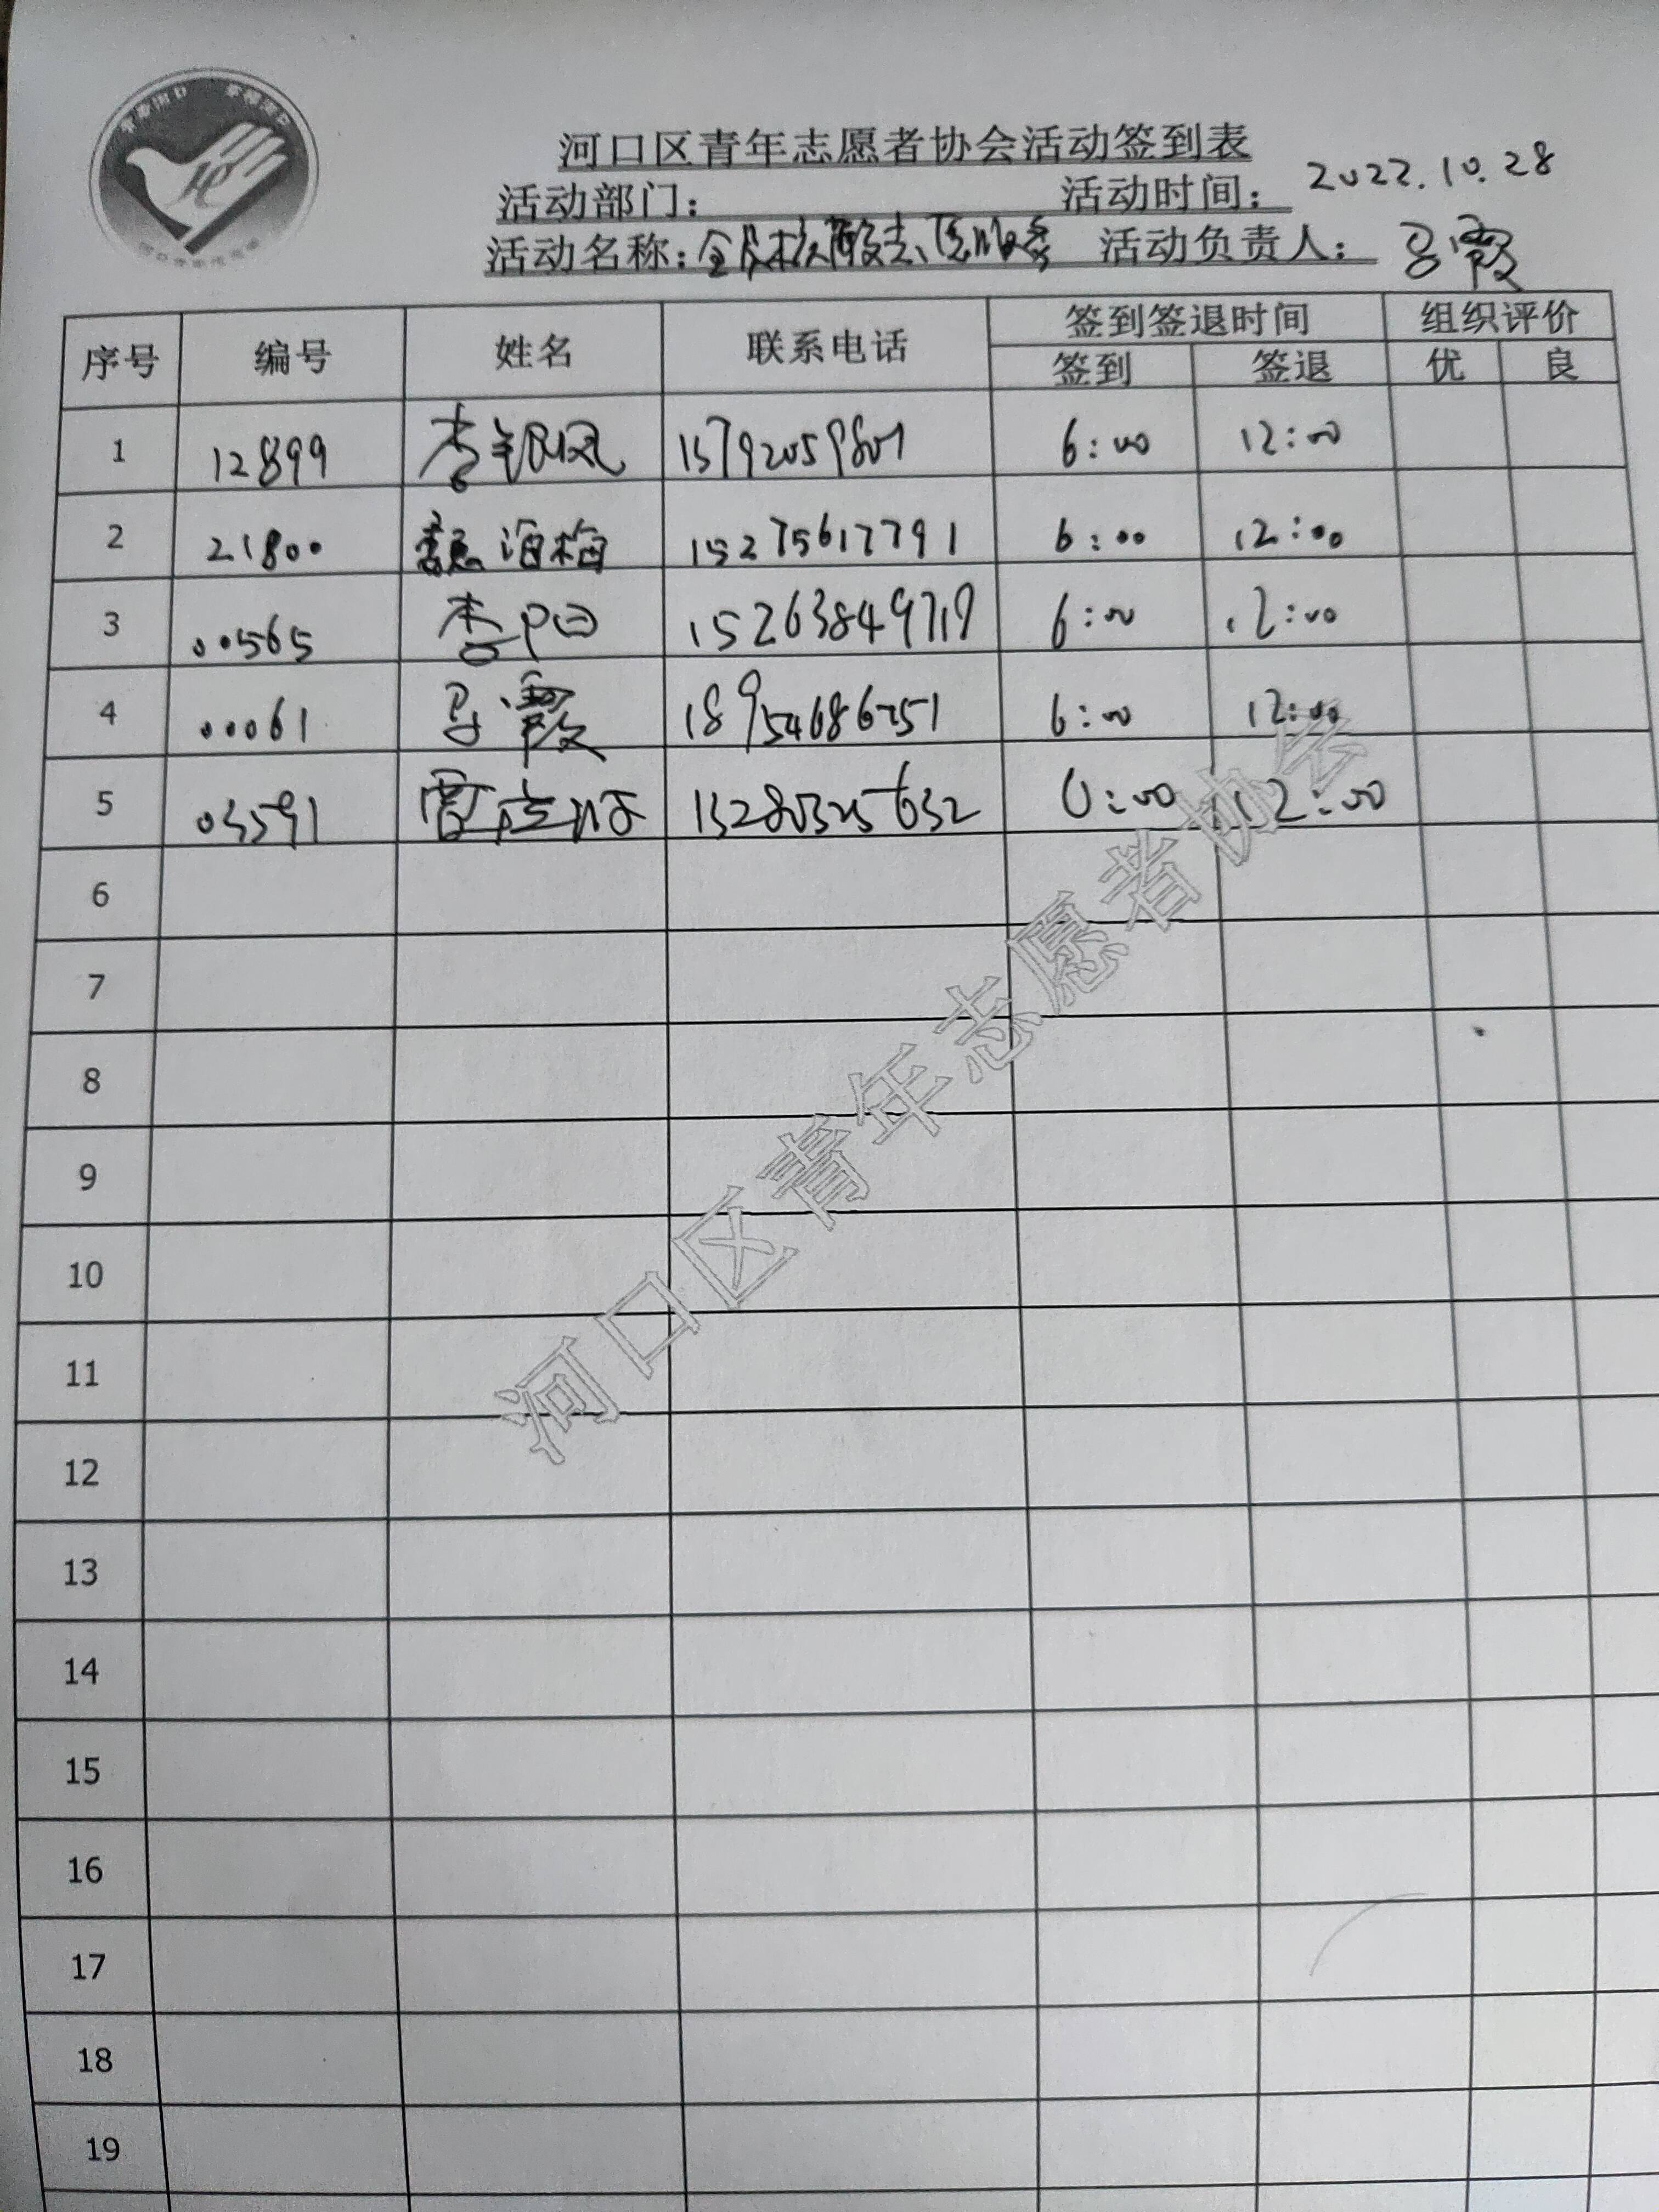 河口区青年志愿者协会活动签到表
活动部门： 活动时间： 2022.10.28
活动名称：全员核酸志愿服务 活动负责人： 吕霞
序号 编号 姓名 联系电话 签到签退时间 组织评价
签到 签退 优 良
1 12899 李银凤 15792059801 6:00 12:00
2 21800 海梅 15275617791 6:00 12:00
3 00565 李 15263849719 6:00 12:00
4 00061 吕霞 18954686251 6:00 12:00
5 03591 6:00 12:00
6
7
8
9
10
11
12
13
14
15
16
17
18
19
河口区青年志愿者协会